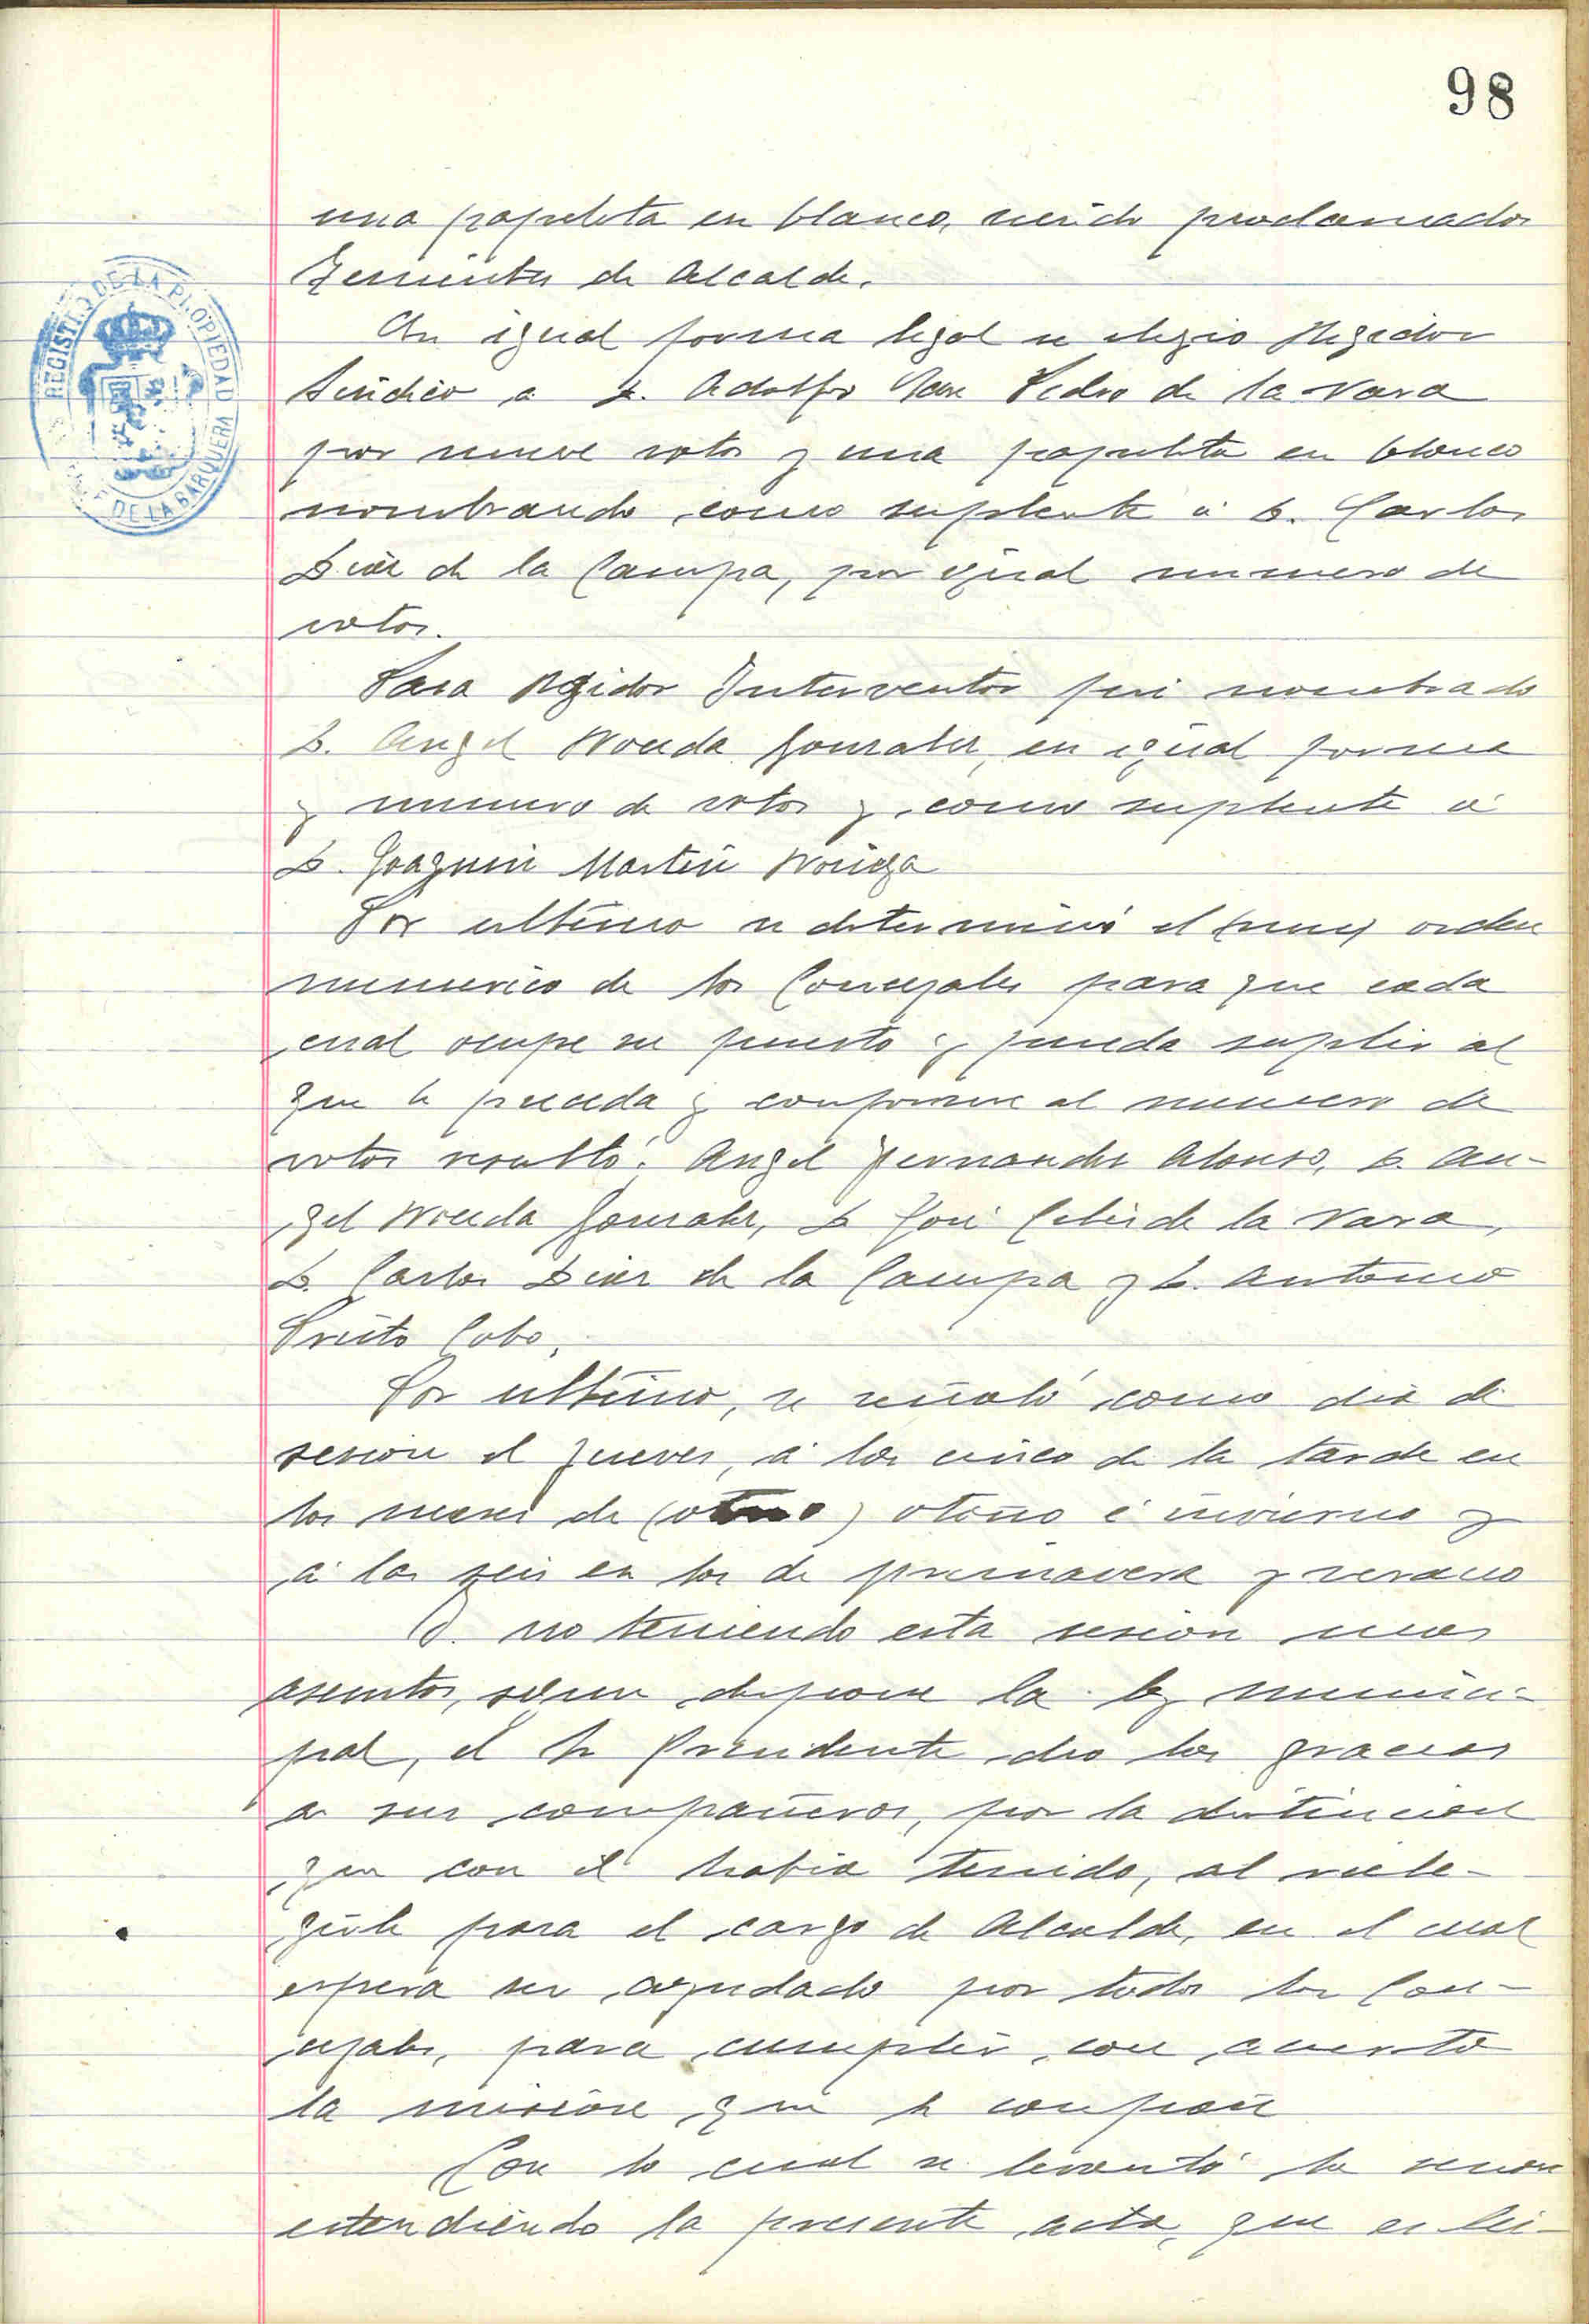 98
REGISTRO DE LA PROPIEDAD
DE LA BARQUERA
una papeleta en blanco, siendo proclamados
Tenientes de Alcalde.
En igual forma legal se eligio Regidor
Sindico a D. Adolfo San Pedro de la Vara
por nueve votos y una papeleta en blanco
nombrando como suplente á D. Carlos
Diaz de la Campa, por igual numero de
votos.
Para Regidor Interventor fué nombrado
D. Angel Noceda Gonzalez, en igual forma
y numero de votos y como suplente á
D. Joaquin Martin Noriega
Por ultimo se determinó el orden
numerico de los Concejales para que cada
cual ocupe su puesto y pueda suplir al
que le preceda y conforme al numero de
votos resultó: Angel Fernandez Alonso, D. An-
gel Noceda Gonzalez, D José de la Vara,
D. Carlos Diaz de la Campa y D. Antonio
Prieto Cobo.
Por ultimo, se señaló como dia de
sesion el jueves, á las cinco de la tarde en
los meses de (otoño) otoño é invierno y
á las seis en los de primavera y verano
Y no teniendo esta sesion mas
asuntos, segun dispone la ley munici-
pal, el Sr Presidente dio las gracias
a sus compañeros, por la distincion
que con el habia tenido, al reele-
girle para el cargo de Alcalde, en el cual
espera ser ayudado por todos los Con-
cejales, para cumplir con acierto
la mision que le confian
Con lo cual se levantó la sesion
estendiendo la presente acta, que es lei-